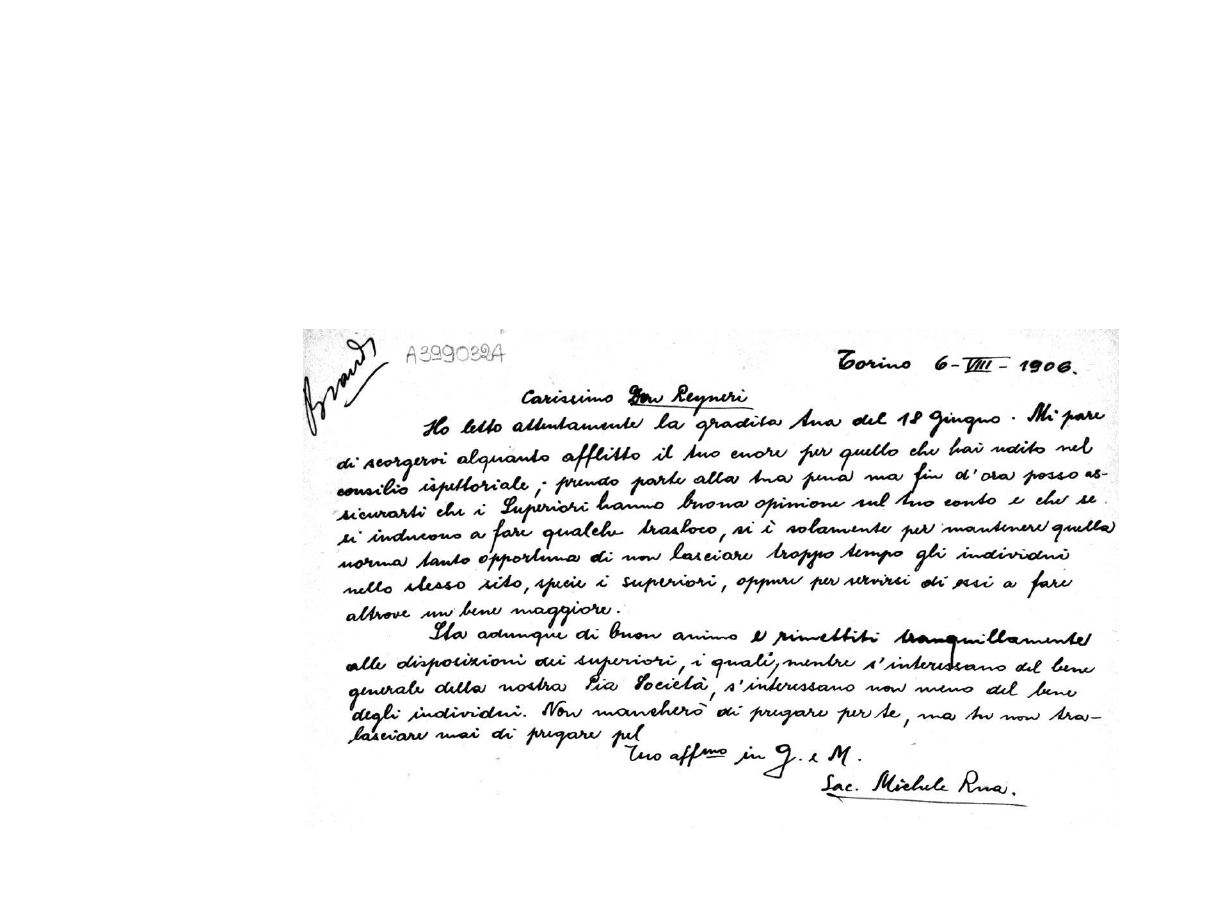 Brandi
A3990324
Torino 6-VIII-1906.
Carissimo Don Reyneri
Ho letto attentamente la gradita tua del 18 Giugno. Mi pare
di scorgervi alquanto afflitto il tuo cuore per quello che hai udito nel
consilio ispettoriale; prendo parte alla tua pena ma fin d'ora posso as-
sicurarti che i Superiori hanno buona opinione sul tuo conto e che se
si inducono a fare qualche trasloco, si è solamente per mantenere quella
norma tanto opportuna di non lasciare troppo tempo gli individui
nello stesso sito, specie i superiori, oppure per servirsi di essi a fare
altrove un bene maggiore.
Sta adunque di buon animo e rimettiti tranquillamente
alle disposizioni dei superiori, i quali, mentre s'interessano del bene
generale della nostra Pia Società, s'interessano non meno del bene
degli individui. Non mancherò di pregare per te, ma tu non tra-
lasciare mai di pregare pel
Tuo affmo in G. e M.
Sac. Michele Rua.